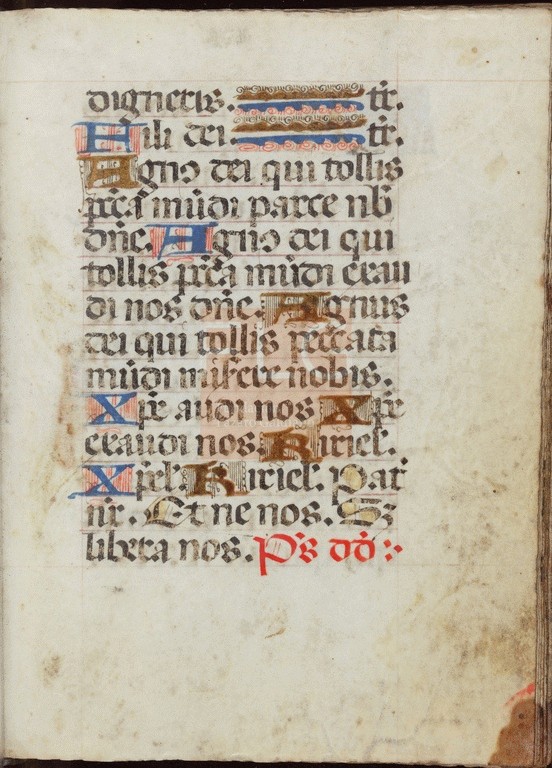 digneris. tr̄.
Fili dei tr̄.
Agn9 dei qui tollis
pc̄cā mūdi parce nb̄
dn̄e. Agn9 dei qui
tollis pc̄cā mūdi exau
di nos dn̄e. Agnus
dei qui tollis peccata
mūdi miserere nobis.
Xp̄e audi nos Xp̄e
exaudi nos. Kiriel̄.
Xp̄el̄. Kiriel̄. Pat̄
nr̄. Et ne nos. Sꝫ
libera nos. Ps̄ dd̄